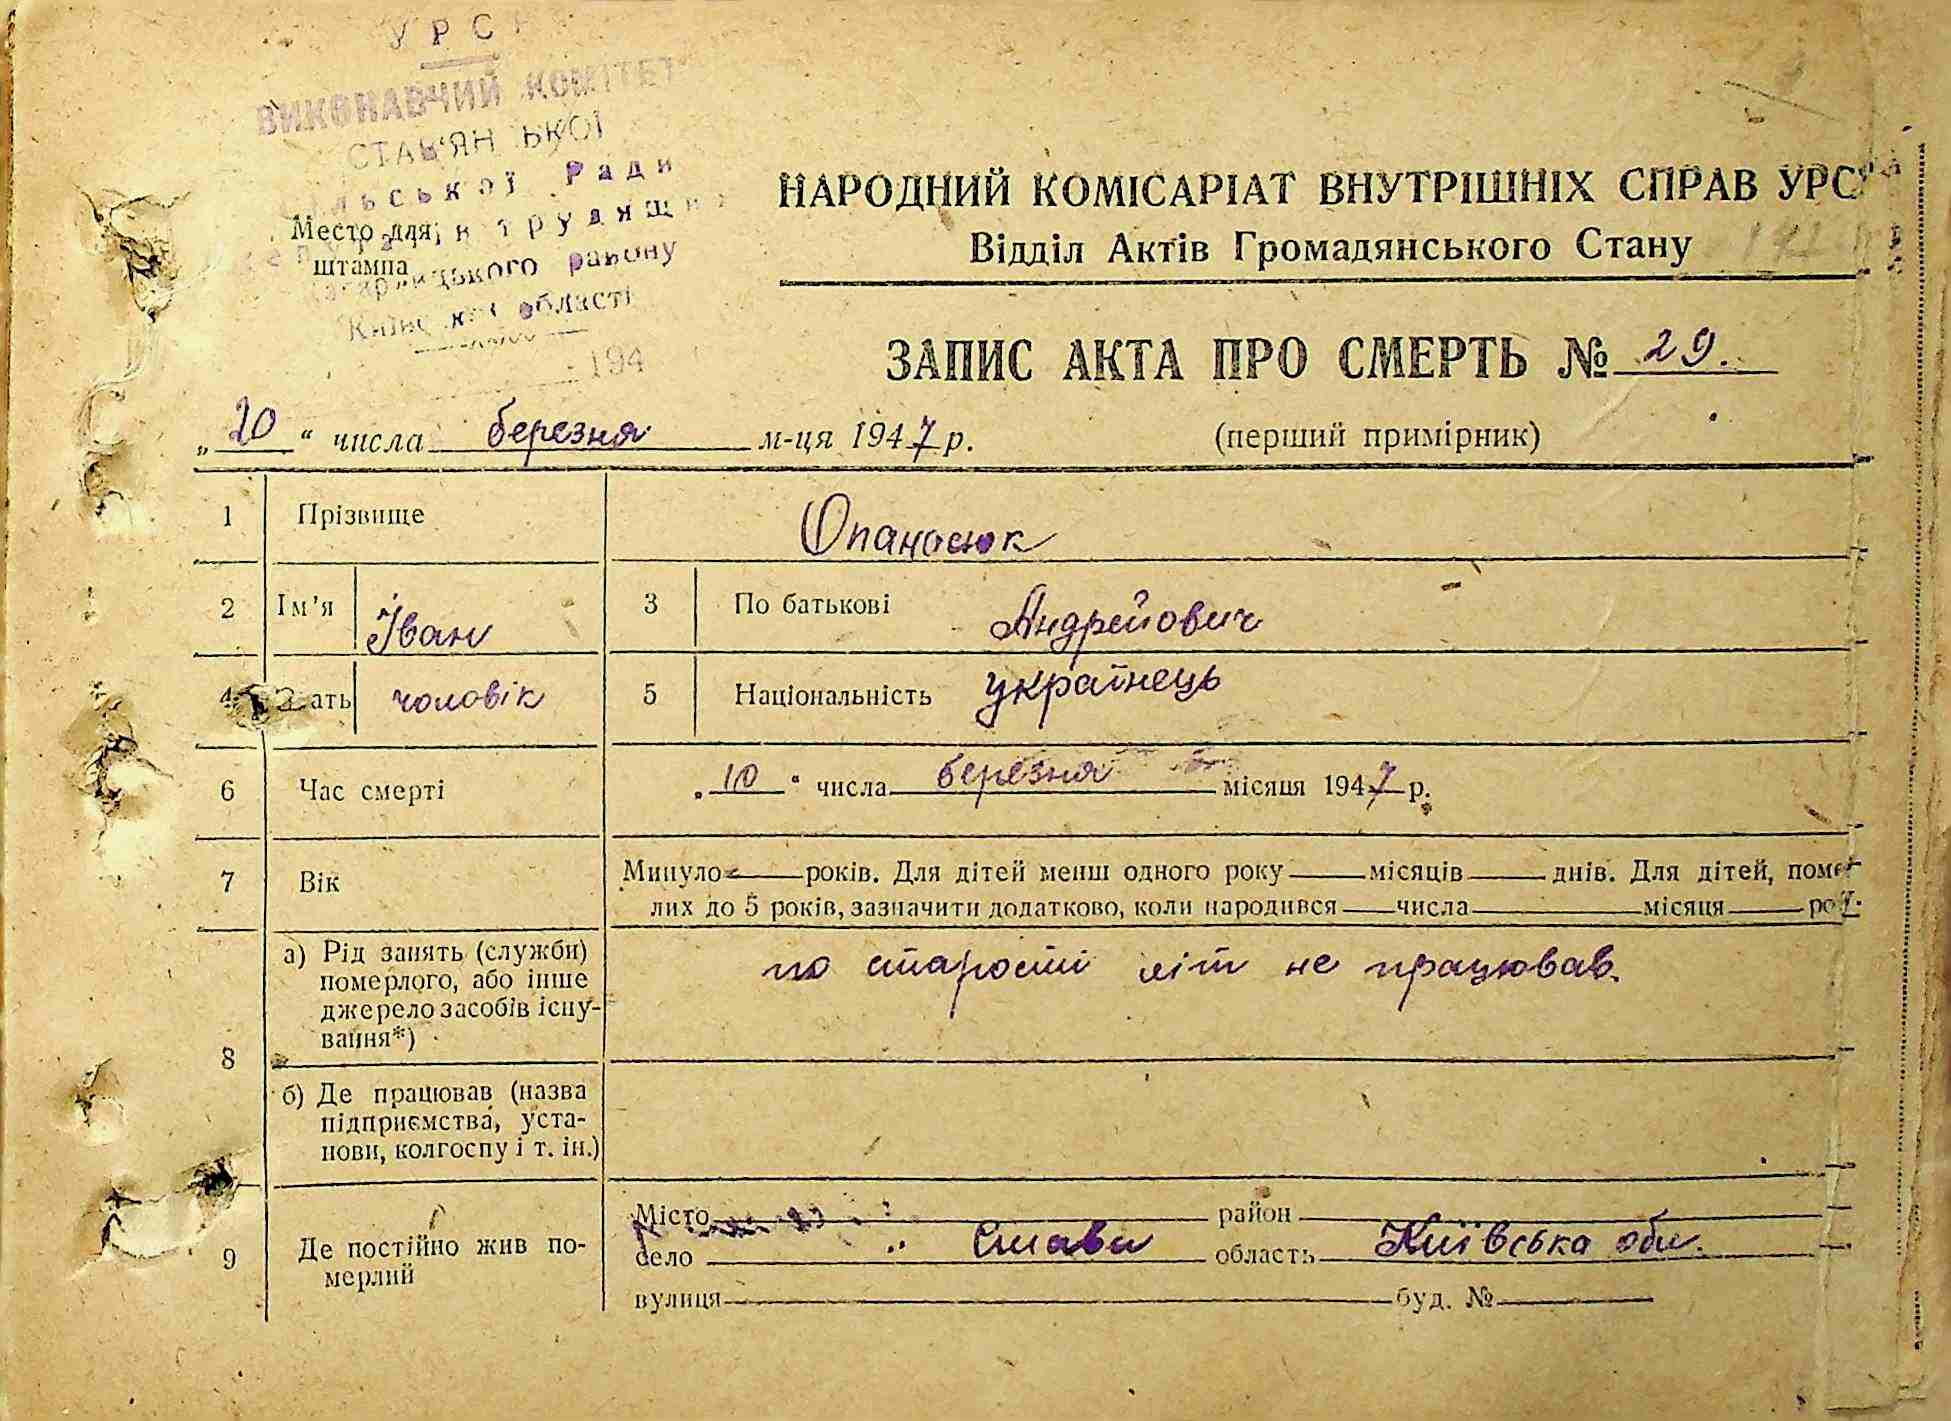 УРС
ВИКОНАВЧИЙ КОМІТЕТ
Ради
трудящих
району
Київської області
194
Место для
штампа
НАРОДНИЙ КОМІСАРІАТ ВНУТРІШНІХ СПРАВ УРСР
Відділ Актів Громадянського Стану
ЗАПИС АКТА ПРО СМЕРТЬ № 29.
„20“ числа березня м-ця 1947 р. (перший примірник)
1 Прізвище Опанасюк
2 Ім’я Іван 3 По батькові Андрейович
4 Стать чоловік 5 Національність українець
6 Час смерті „10“ числа березня місяця 1947 р.
7 Вік Минуло років. Для дітей менш одного року місяців днів. Для дітей, помер-
лих до 5 років, зазначити додатково, коли народився числа місяця
8 а) Рід занять (служби)
померлого, або інше
джерело засобів існу-
вання*)
по старості літ не працював.
б) Де працював (назва
підприємства, уста-
нови, колгоспу і т. ін.)
9 Де постійно жив по-
мерлий
Місто район
село „ Стави область Київська обл.
вулиця буд. №